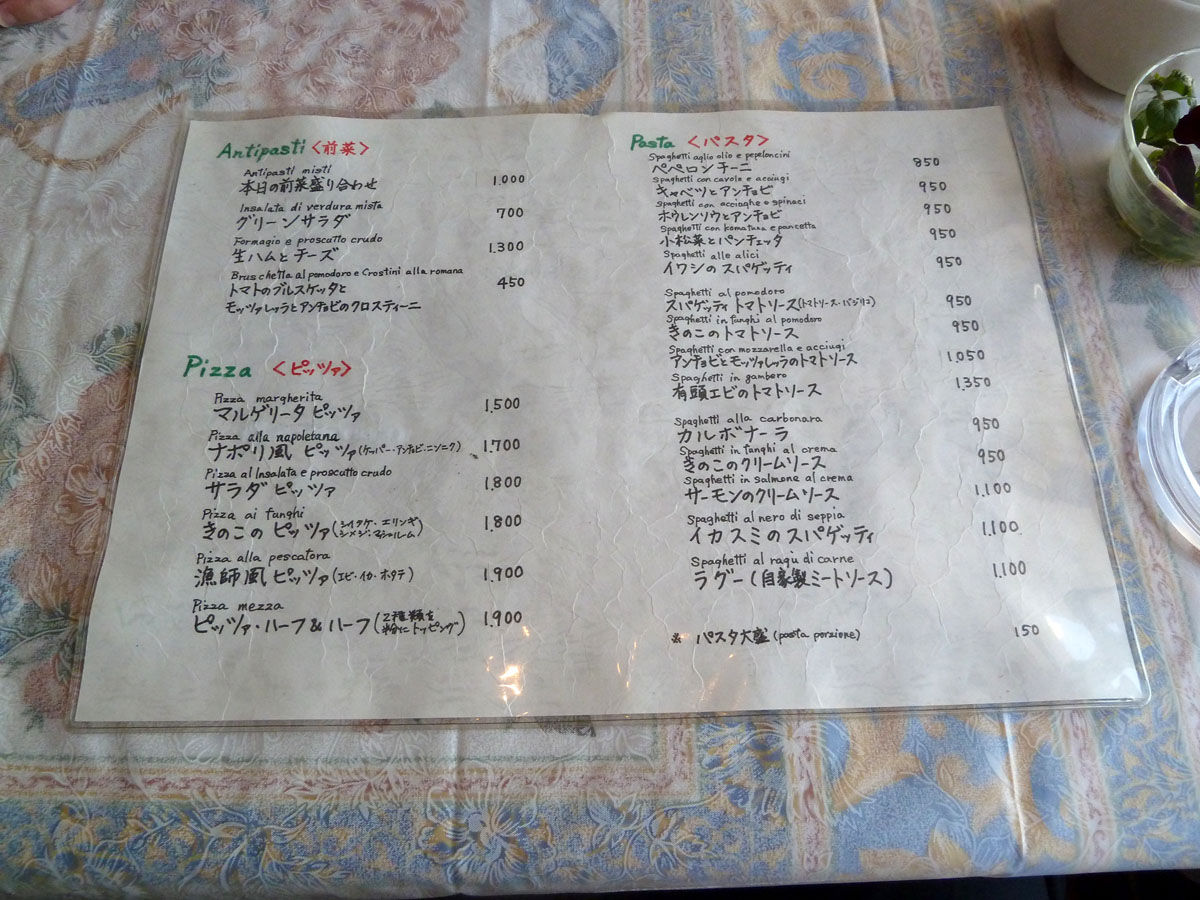 Antipasti <前菜>
Antipasti misti
本日の前菜盛り合わせ 1.000
Insalata di verdura mista
グリーンサラダ 700
Formagio e proscutto crudo
生ハムとチーズ 1.300
Bruschetta al pomodoro e Crostini alla romana
トマトのブルスケッタと 450
モッツァレッラとアンチョビのクロスティーニ
Pizza <ピッツァ>
Pizza margherita
マルゲリータ ピッツァ 1.500
Pizza alla napoletana
ナポリ風 ピッツァ(ケッパー・アンチョビ・ニンニク) 1.700
Pizza al Insalata e proscutto crudo
サラダ ピッツァ 1.800
Pizza ai funghi
きのこの ピッツァ(シイタケ・エリンギ 1.800
シメジ・マッシュルーム)
Pizza alla pescatora
漁師風 ピッツァ(エビ・イカ・ホタテ) 1.900
Pizza mezza
ピッツァ・ハーフ&ハーフ(2種類を 1.900
半分にトッピング)
Pasta <パスタ>
Spaghetti aglio olio e pepeloncini
ペペロンチーニ 850
Spaghetti con cavolo e acciugi
キャベツとアンチョビ 950
Spaghetti con acciaghe o spinaci
ホウレンソウとアンチョビ 950
Spaghetti con komatuna e pancetta
小松菜とパンチェッタ 950
Spaghetti alle alici
イワシのスパゲッティ 950
Spaghetti al pomodoro
スパゲッティ トマトソース(トマトソース・バジリコ) 950
Spaghetti in funghi al pomodoro
きのこのトマトソース 950
Spaghetti con mozzarella e acciugi
アンチョビとモッツァレッラのトマトソース 1.050
Spaghetti in gambero
有頭エビのトマトソース 1.350
Spaghetti alla carbonara
カルボナーラ 950
Spaghetti in funghi al crema
きのこのクリームソース 950
Spaghetti in salmone al crema
サーモンのクリームソース 1.100
Spaghetti al nero di seppia
イカスミのスパゲッティ 1.100
Spaghetti al ragù di carne
ラグー(自家製ミートソース) 1.100
※ パスタ大盛(pasta porzione) 150